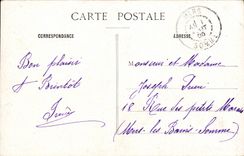 CARTE POSTALE
CORRESPONDANCE
ADRESSE
SOMME
Bon plaisir
& Bientôt
Monsieur et Madame
Joseph
18 Rue des petits
(Mers les Bains Somme)